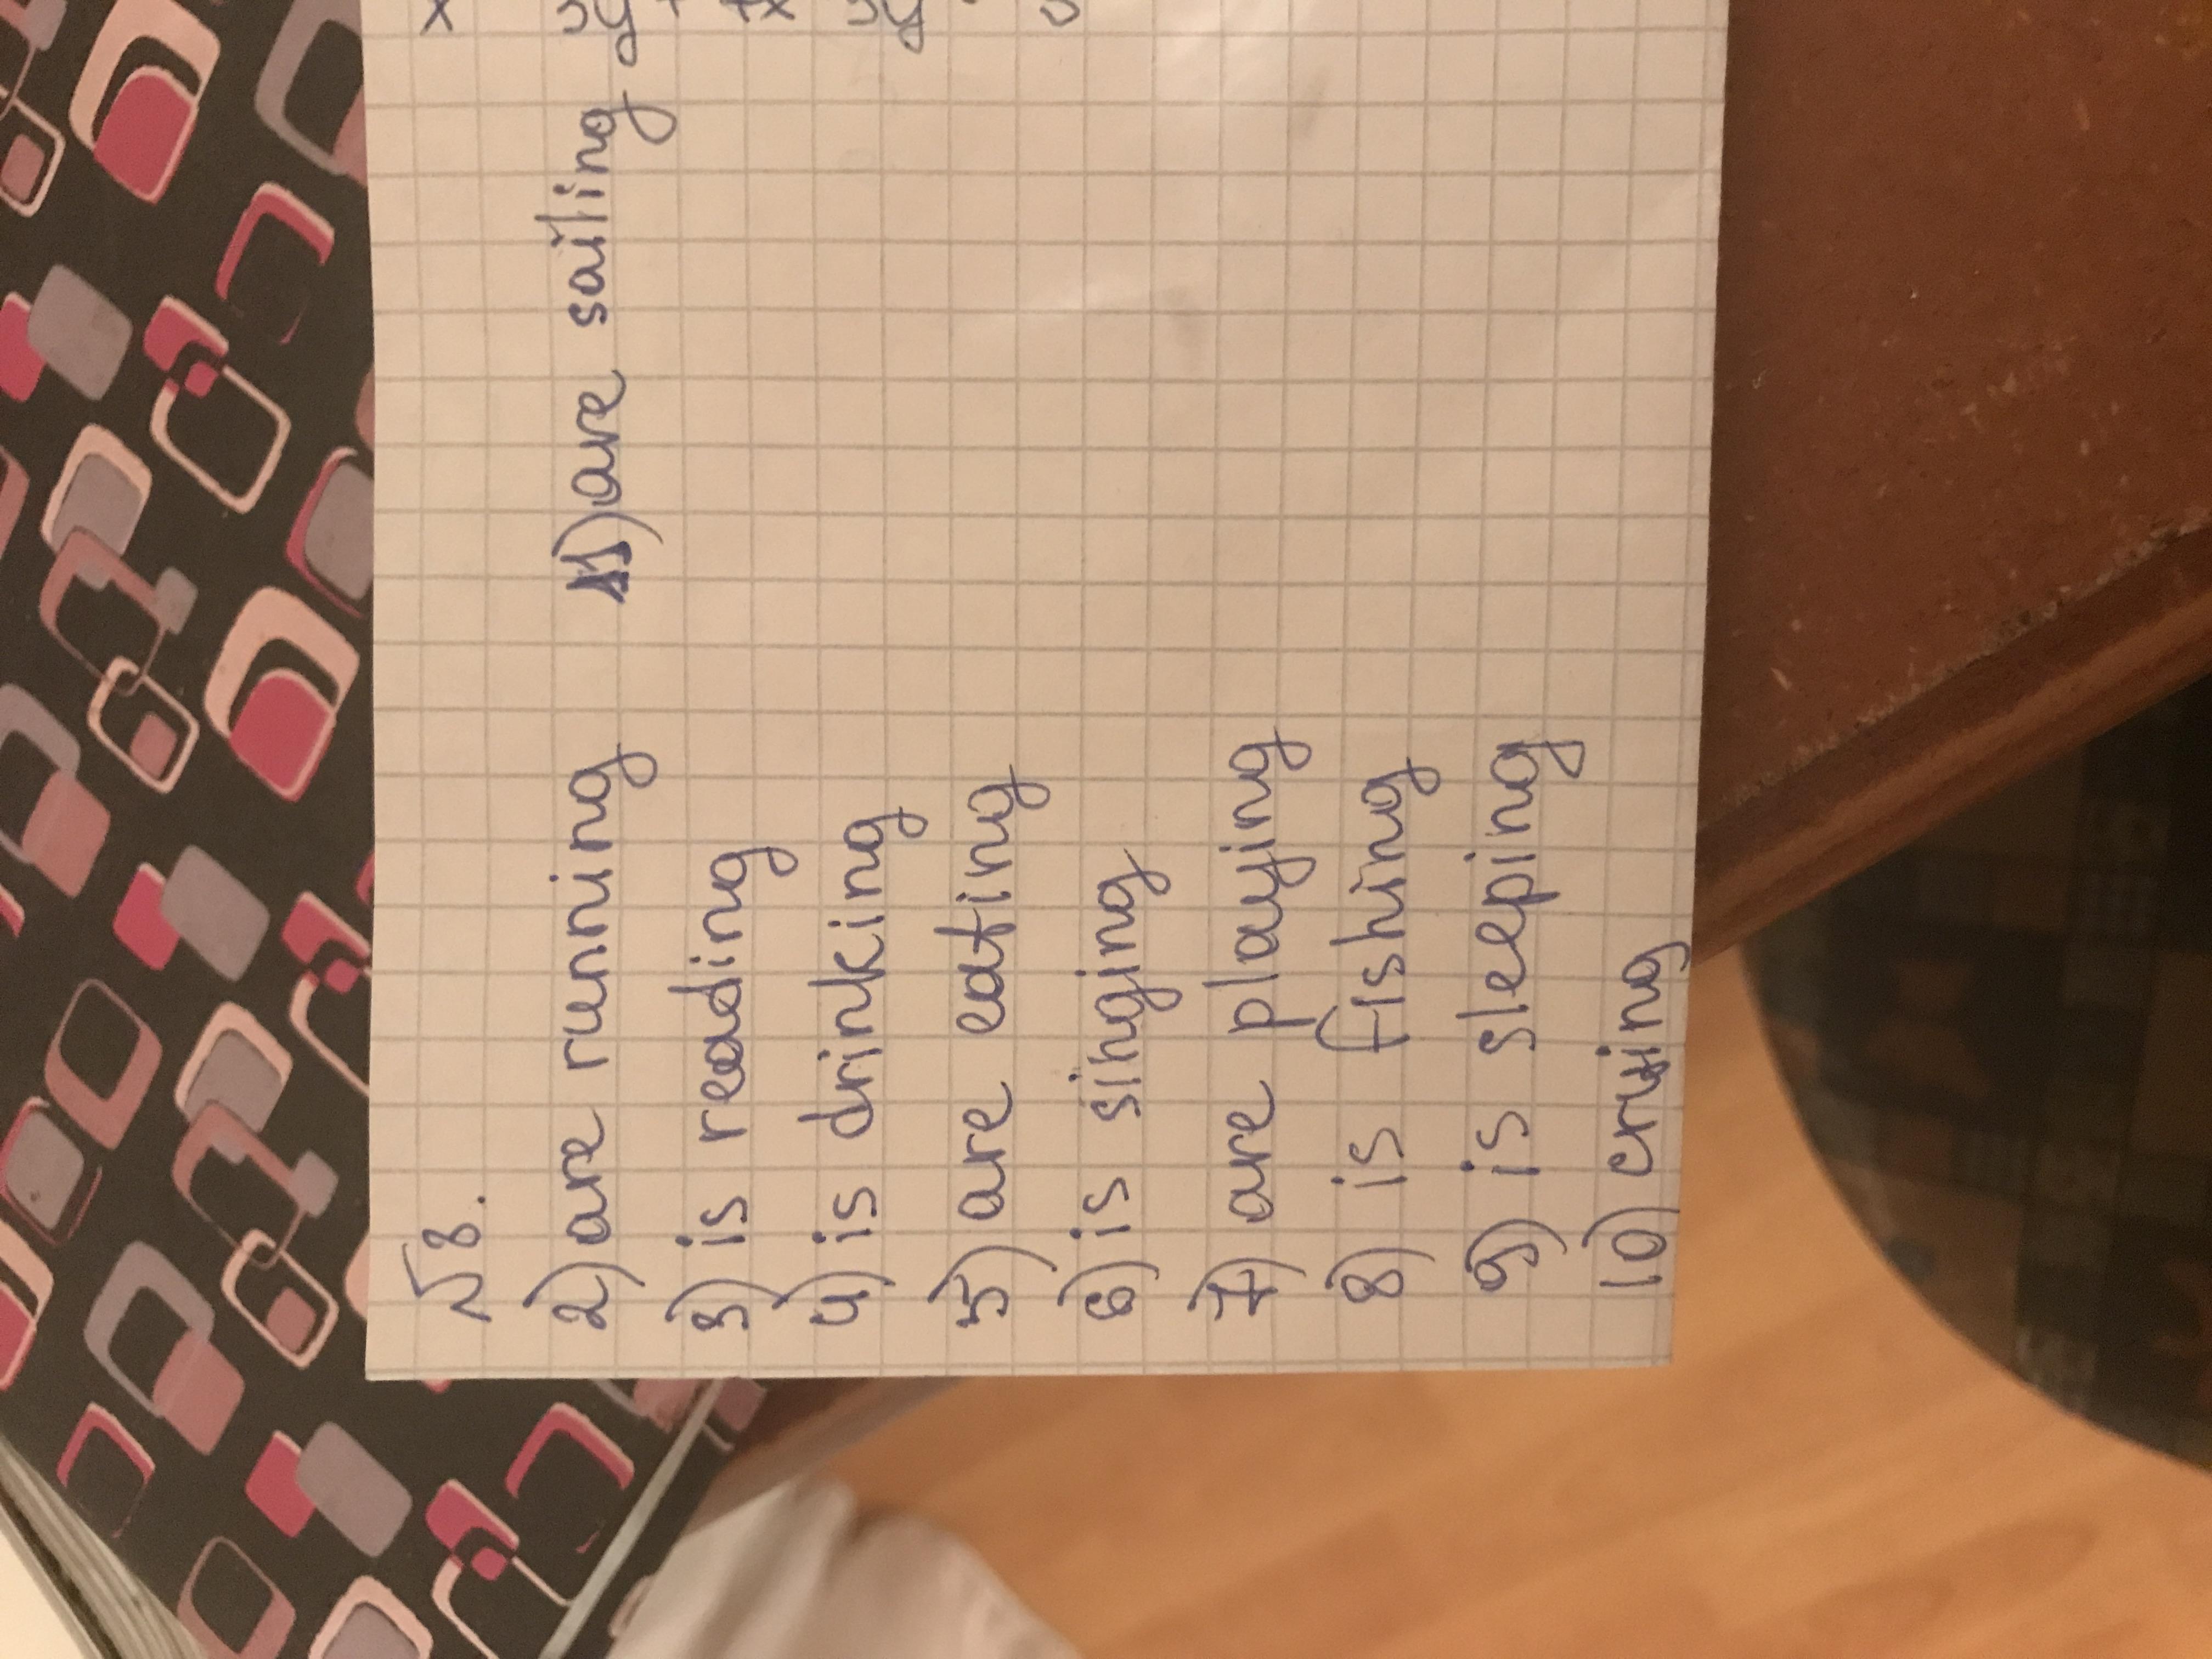 №8.
2) are running 11) are sailing
3) is reading
4) is drinking
5) are eating
6) is singing
7) are playing
8) is fishing
9) is sleeping
10) crying